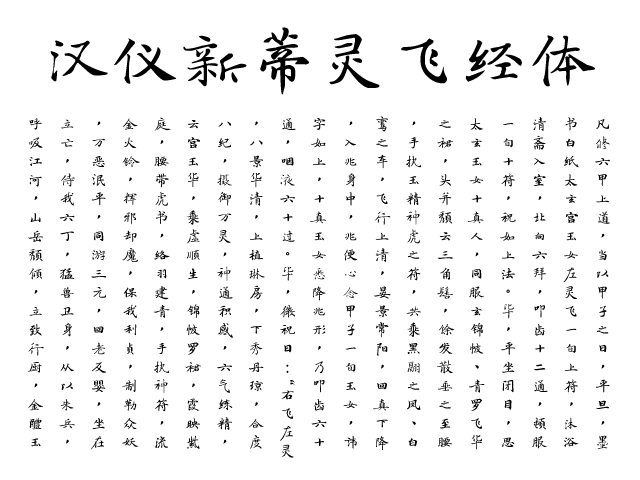 汉仪新蒂灵飞经体
凡修六甲上道，当以甲子之日，平旦，墨
书白纸太玄宫玉女左灵飞一旬上符，沐浴
清斋入室，北向六拜，叩齿十二通，顿服
一旬十符，祝如上法。毕，平坐闭目，思
太玄玉女十真人，同服玄锦帔、青罗飞华
之裙，头并颓云三角髻，馀发散垂之至腰
，手执玉精神虎之符，共乘黑翮之凤、白
鸾之车，飞行上清，晏景常阳，回真下降
，入兆身中，兆便心念甲子一旬玉女，讳
字如上，十真玉女悉降兆形，乃叩齿六十
通，咽液六十过。毕，微祝曰：“右飞左灵
，八景华清，上植琳房，下秀丹琼，合度
八纪，摄御万灵，神通积感，六气练精，
云宫玉华，乘虚顺生，锦帔罗裙，霞映紫
庭，腰带虎书，络羽建青，手执神符，流
金火铃，挥邪却魔，保我利贞，制勒众妖
，万恶泯平，同游三元，回老反婴，坐在
立亡，侍我六丁，猛兽卫身，从以朱兵，
呼吸江河，山岳颓倾，立致行厨，金醴玉